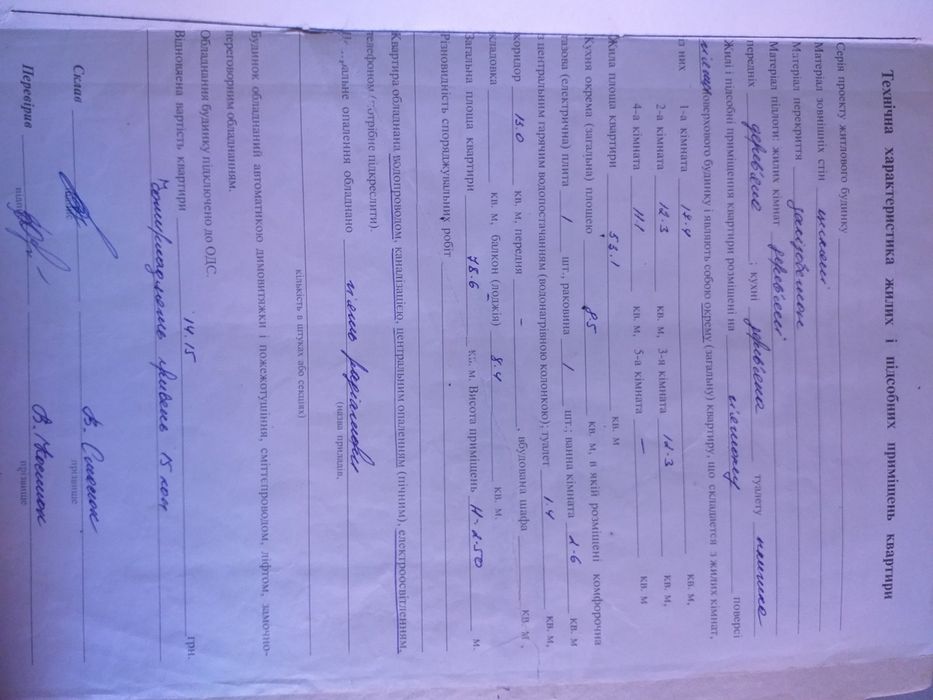 Технічна характеристика жилих і підсобних приміщень квартири
Серія проекту житлового будинку
Матеріал зовнішніх стін цегляні
Матеріал перекриття залізобетон
Матеріал підлоги: жилих кімнат дерев'яні
передніх дерев'яна ; кухні дерев'яна туалету плитка
Жилі і підсобні приміщення квартири розміщені на поверсі
поверхового будинку і являють собою окрему (загальну) квартиру, що складається з жилих кімнат,
із них 1-а кімната 17.4 кв. м,
2-а кімната 12.3 кв. м, 3-я кімната 12.3 кв. м,
4-а кімната 11.1 кв. м, 5-а кімната — кв. м
Жила площа квартири 53.1 кв. м
Кухня окрема (загальна) площею 8.5 кв. м, в якій розміщені комфорочна
газова (електрична) плита 1 шт., раковина 1 шт.; ванна кімната 2.6 кв. м
з центральним гарячим водопостачанням (водонагрівною колонкою); туалет 1.4 кв. м,
коридор 13.0 кв. м, передня – , вбудована шафа кв. м,
кладовка кв. м, балкон (лоджія) 8.4 кв. м.
Загальна площа квартири 78.6 кв. м. Висота приміщень H-2.50 м.
Різновидність споряджувальних робіт
Квартира обладнана водопроводом, каналізацією, центральним опаленням (пічним), електроосвітленням,
телефоном (потрібне підкреслити).
опалення обладнано
(назва приладів,
кількість в штуках або секціях)
Будинок обладнаний автоматикою димовитяжки і пожежотушіння, сміттєпроводом, ліфтом, замочно-
переговорним обладнанням.
Обладнання будинку підключено до ОДС.
Відновлена вартість квартири 14.15 грн.
Чотирнадцять гривень 15 коп
Склав В.
прізвище
Перевірив В.
прізвище